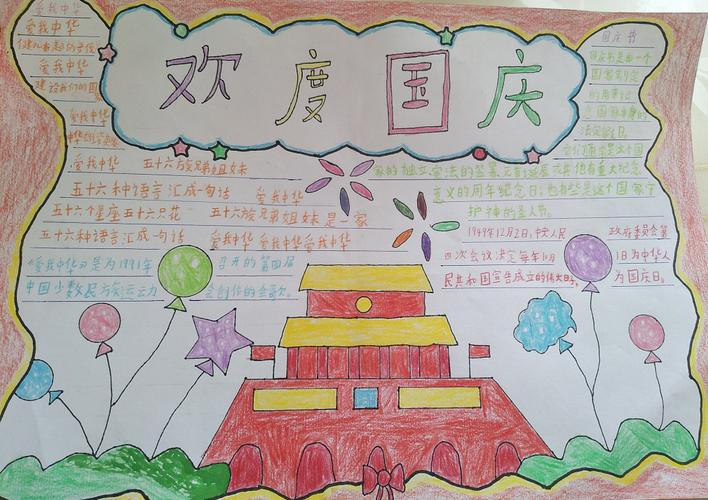 欢度国庆
爱我中华
健儿奋起的步伐
爱我中华
建设我们的国家
爱我中华
爱我中华 五十六族兄弟姐妹
五十六种语言汇成一句话 爱我中华
五十六个星座五十六只花 五十六族兄弟姐妹是一家
五十六种语言汇成一句话 爱我中华爱我中华爱我中华
《爱我中华》是为1991年 召开的第四届
中国少数民 会创作的会歌。
国庆节
国庆节是由一个
国家制定
的用来纪
念国家本身的
法定假日。
它们通常是这个国
家的独立、宪法的签署、元首诞辰或其他有重大纪念
意义的周年纪念日；也有些是这个国家守
护神的圣人节。
1949年12月2日，中央人民 政府委员会第
四次会议决定每年10月 1日为中华人
民共和国宣告成立的伟大日子， 为国庆日。